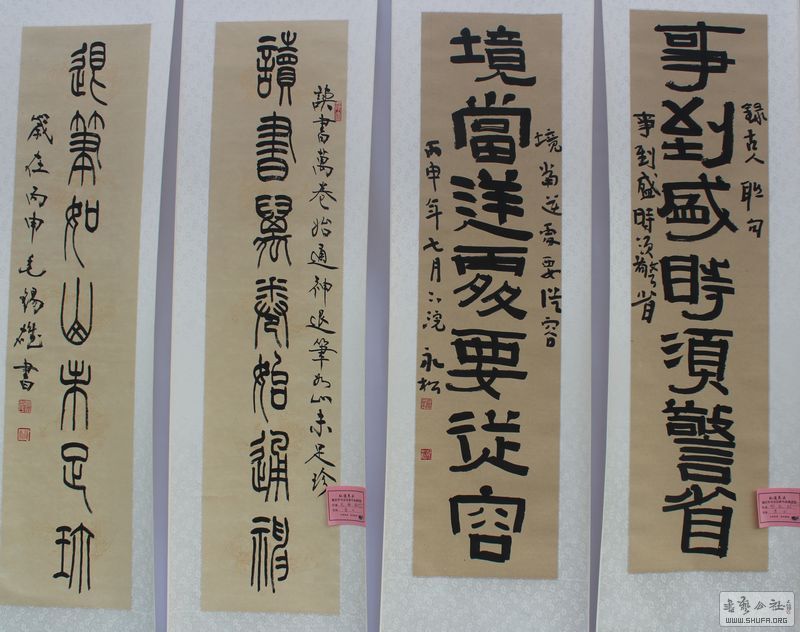 録古人聯句
事到盛時須警省
事到盛時须警省
境當逆處要從容
境當逆處要從容
丙申年七月下浣 永松
讀書萬卷始通神退筆如山未足珍
讀書萬卷始通神
退筆如山未足珍
歲在丙申毛锡書
書法公社
WWW.SHUFA.ORG